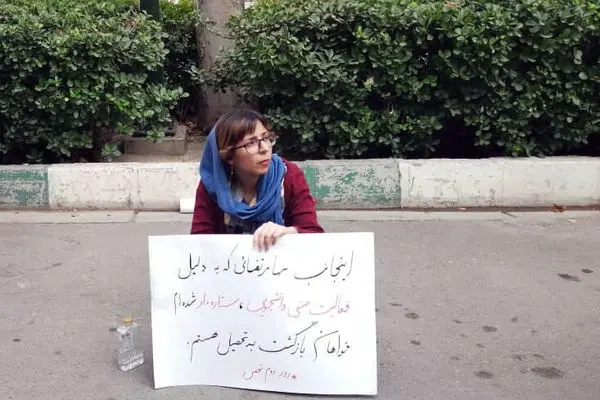 اینجانب ساها رتضائی که به دلیل
فعالیت صنفی دانشجویی، ستاره‌دار شده‌ام
خواهان بازگشت به تحصیل هستم.
*روز دوم تحصن